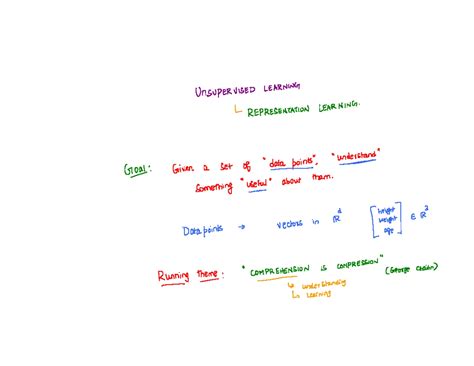 UNSUPERVISED LEARNING
REPRESENTATION LEARNING.
GOAL: Given a set of "data points", "understand"
something "useful" about them.
Data points → vectors in ℝᵈ [height weight age] ∈ ℝ³
Running theme: "COMPREHENSION IS COMPRESSION" (George Chaitin)
↳ understanding
↳ learning